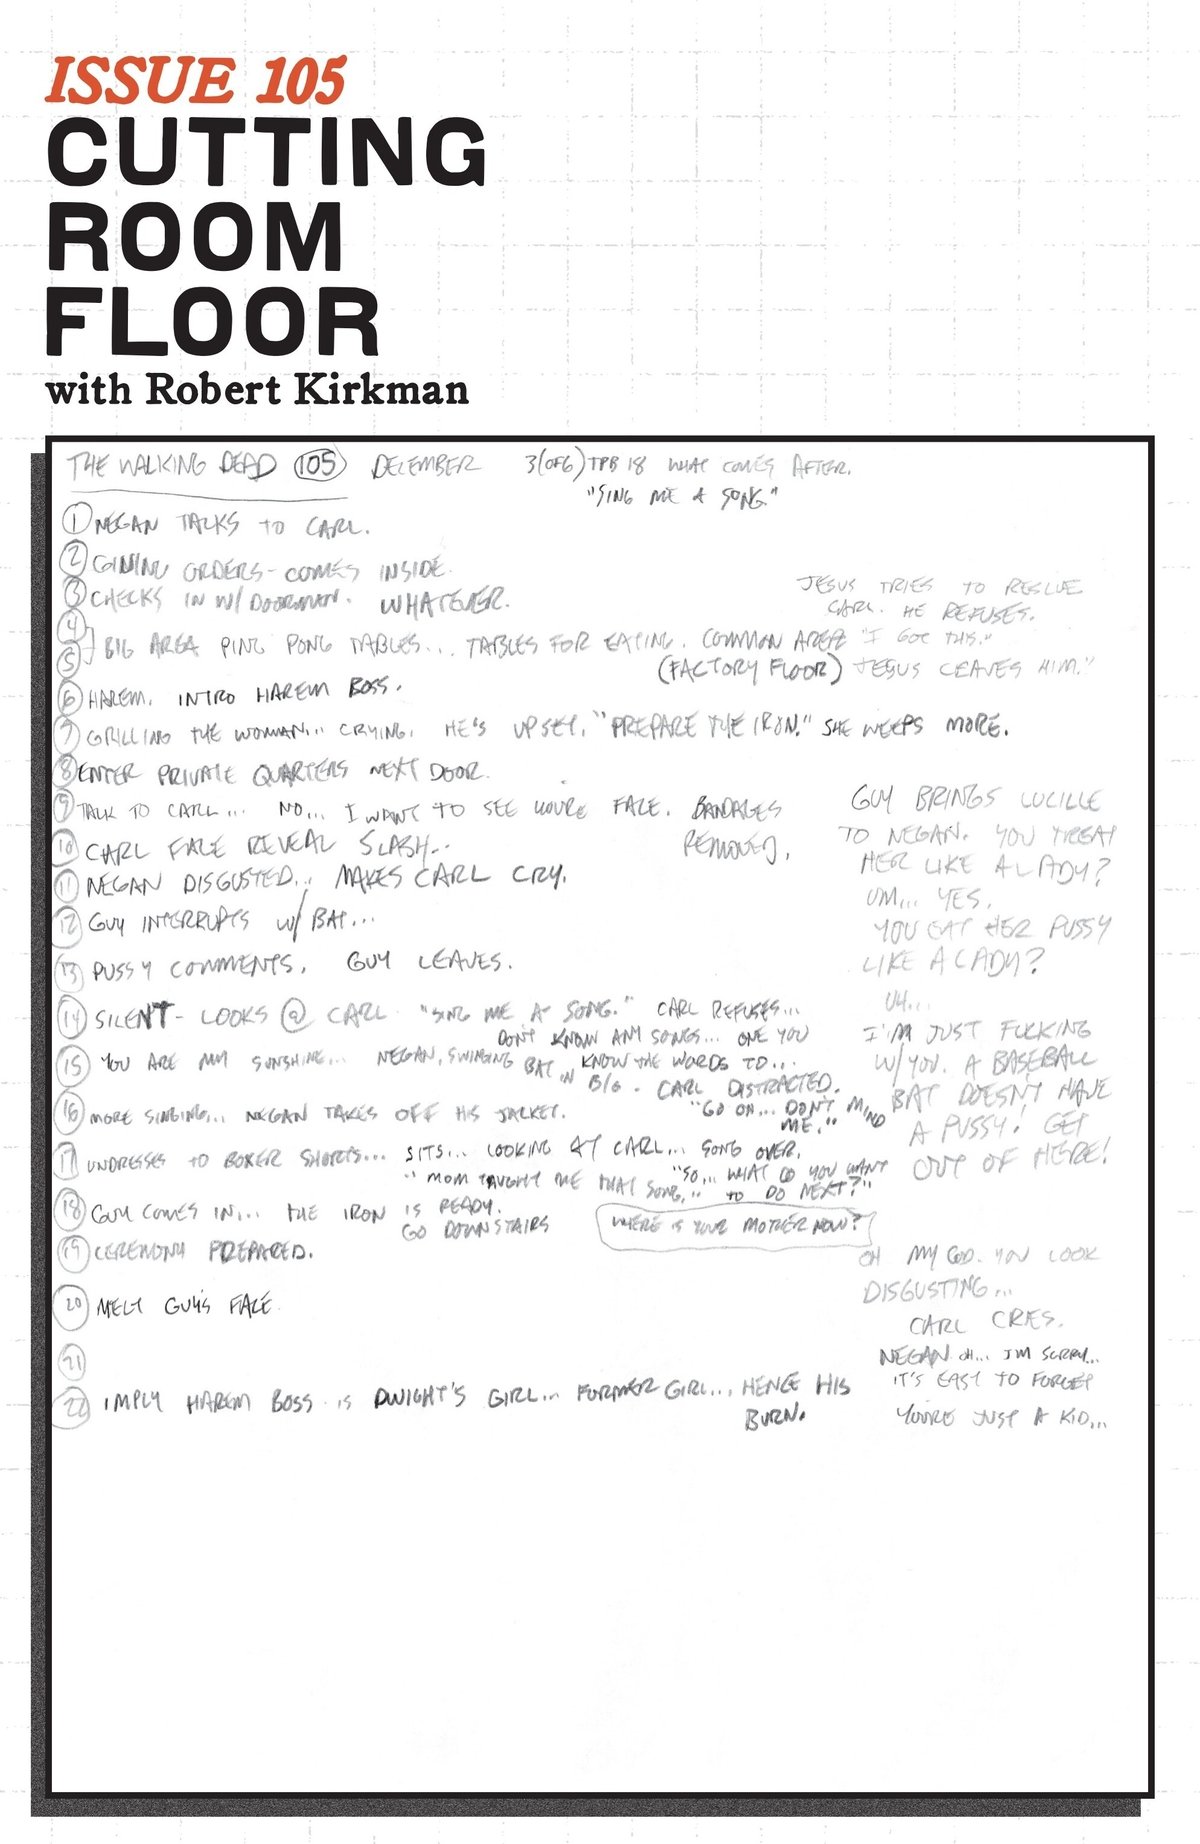 ISSUE 105
CUTTING
ROOM
FLOOR
with Robert Kirkman
THE WALKING DEAD 105 DECEMBER 3(OF6) TPB 18 WHAT COMES AFTER.
"SING ME A SONG."
1 NEGAN TALKS TO CARL.
2 GIVING ORDERS - COMES INSIDE.
3 CHECKS IN W/ DOORMAN. WHATEVER.
4
5 BIG AREA PING PONG TABLES... TABLES FOR EATING. COMMON AREA
(FACTORY FLOOR)
JESUS TRIES TO RESCUE
CARL. HE REFUSES.
"I GOT THIS."
JESUS LEAVES HIM."
6 HAREM. INTRO HAREM BOSS.
7 GRILLING THE WOMAN... CRYING. HE'S UPSET. "PREPARE THE IRON." SHE WEEPS MORE.
8 ENTER PRIVATE QUARTERS NEXT DOOR.
9 TALK TO CARL... NO... I WANT TO SEE YOUR FACE. BANDAGES
REMOVED.
10 CARL FACE REVEAL SLASH...
11 NEGAN DISGUSTED... MAKES CARL CRY.
12 GUY INTERRUPTS W/ BAT...
13 PUSSY COMMENTS. GUY LEAVES.
14 SILENT - LOOKS @ CARL. "SING ME A SONG." CARL REFUSES...
DON'T KNOW ANY SONGS... ONE YOU
KNOW THE WORDS TO...
15 YOU ARE MY SUNSHINE... NEGAN, SWINGING BAT IN B/G. CARL DISTRACTED.
"GO ON... DON'T MIND
ME."
16 MORE SINGING... NEGAN TAKES OFF HIS JACKET.
17 UNDRESSES TO BOXER SHORTS... SITS... LOOKING AT CARL... SONG OVER.
"MOM TAUGHT ME THAT SONG." "SO... WHAT DO YOU WANT
TO DO NEXT?"
18 GUY COMES IN... THE IRON IS READY.
GO DOWNSTAIRS
WHERE IS YOUR MOTHER NOW?
19 CEREMONY PREPARED.
20 MELT GUY'S FACE
21
22 IMPLY HAREM BOSS IS DWIGHT'S GIRL... FORMER GIRL... HENCE HIS
BURN.
GUY BRINGS LUCILLE
TO NEGAN. YOU TREAT
HER LIKE A LADY?
UM... YES.
YOU EAT HER PUSSY
LIKE A LADY?
UH...
I'M JUST FUCKING
W/ YOU. A BASEBALL
BAT DOESN'T HAVE
A PUSSY! GET
OUT OF HERE!
OH MY GOD. YOU LOOK
DISGUSTING...
CARL CRIES.
NEGAN OH... I'M SORRY...
IT'S EASY TO FORGET
YOU'RE JUST A KID...